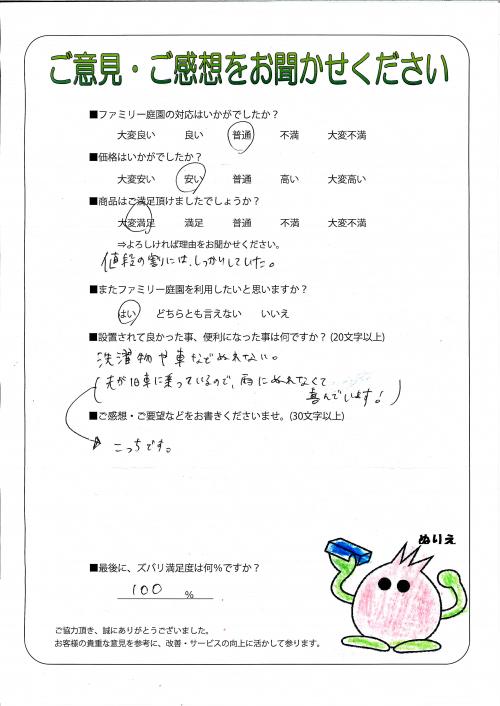 ご意見・ご感想をお聞かせください
■ファミリー庭園の対応はいかがでしたか？
大変良い　良い　普通　不満　大変不満
■価格はいかがでしたか？
大変安い　安い　普通　高い　大変高い
■商品はご満足頂けましたでしょうか？
大変満足　満足　普通　不満　大変不満
⇒よろしければ理由をお聞かせください。
値段の割には、しっかりしていた。
■またファミリー庭園を利用したいと思いますか？
はい　どちらとも言えない　いいえ
■設置されて良かった事、便利になった事は何ですか？(20文字以上)
洗濯物や車などぬれない。
(夫が旧車に乗っているので、雨にぬれなくて
喜んでいます！)
■ご感想・ご要望などをお書きくださいませ。(30文字以上)
こっちです。
ぬりえ
■最後に、ズバリ満足度は何％ですか？
100 %
ご協力頂き、誠にありがとうございました。
お客様の貴重な意見を参考に、改善・サービスの向上に活かして参ります。